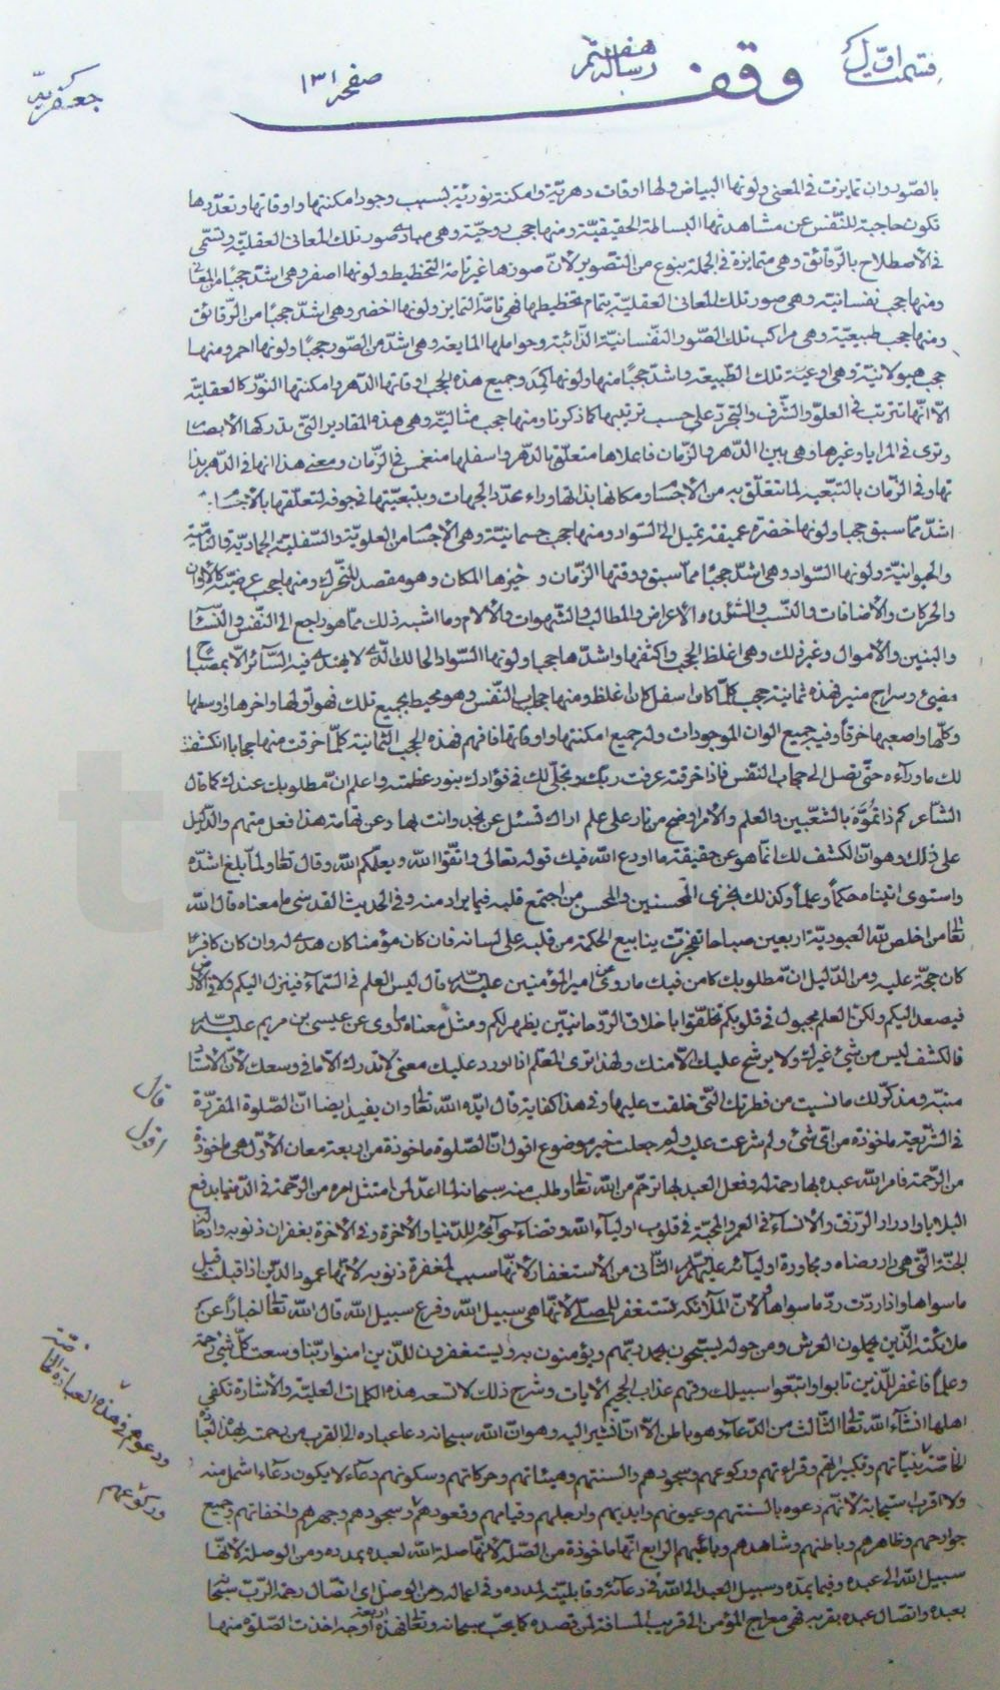 قسمت اول
وقف
رساله هفتم
صفحه ۱۳۱
بالصّور وان تمايزت فى المعنى ولونها البياض ولها اوقات دهريّة وامكنة نوريّة بسبب وجود امكنتها واوقاتها وتعدّدها
تكون حاجبة للنّفس عن مشاهدتها البساطة الحقيقيّة ومنها حجب روحيّة وهى مبادى صور تلك المعانى العقليّة وتسمّى
فى الأصطلاح بالرّقائق وهى متمايزة فى الجملة بنوع من التّصوير لأنّ صورها غير تامّة التّخطيط ولونها اصفر وهى اشدّ حجبًا من المعانى
ومنها حجب نفسانيّة وهى صور تلك المعانى العقليّة بتمام تخطيطها فهى تامّة التمايز ولونها اخضر وهى اشدّ حجبًا من الرّقائق
ومنها حجب طبيعيّة وهى مراكب تلك الصّور النّفسانيّة الذّائبة وحواملها المايعة وهى اشدّ من الصّور حجبًا ولونها احمر ومنها
حجب هيولانيّة وهى اوعية تلك الطّبيعة واشدّ حجبًا منها ولونها كمِد وجميع هذه الحجب اوقاتها الدّهر وامكنتها النّور كالعقليّة
الّا انّها تترتب فى العلوّ والشّرف والتجرّد على حسب ترتيبها كما ذكرنا ومنها حجب مثاليّة وهى هذه المقادير الّتى تدركها الأبصار
وترى فى المرايا وغيرها وهى بين الدّهر والزّمان فاعلاها متعلّق بالدّهر واسفلها منغمس فى الزّمان ومعنى هذا انها فى الدّهر بذا
تها وفى الزّمان بالتّبعيّة لما تتعلّق به من الأجسام ومكانها بذاتها وراء محدّد الجهات وبتبعيّتها فى جوفه لتعلّقها بالأجسام
اشدّ ممّا سبق حجبا ولونها خضرة عميقة تميل الى السّواد ومنها حجب جسمانيّة وهى الأجسام من العلويّة والسّفليّة الجماديّة والنّامية
والحيوانيّة ولونها السّواد وهى اشدّ حجبًا ممّا سبق ووقتها الزّمان و حيّزها المكان وهو مقصد للمتحرّك ومنها حجب عرضيّة كالألوان
والحركات والأضافات والنّسب والشّئون والاعراض والمطالب والشّهوات والألام وما اشبه ذلك ممّا هو راجع الى النّفس والنّساء
والبنين والأموال وغير ذلك وهى اغلظ الحجب واكثفها واشدّها حجبا ولونها السّواد الحالك الّذى لا يهتدى فيه السّائر الّا بمصباح
مضىئ وسراج منير فهذه ثمانية حجب كلّما كان اسفل كان اغلظ ومنها حجاب النّفس وهو محيط بجميع تلك فهو اوّلها واخرها واوسطها
وكلّها واصعبها خرقًا وفيه جميع الوان الموجودات وله جميع امكنتها واوقاتها فافهم فهذه الحجب الثّمانية كلّما خرقت منها حجابا انكشف
لك ما ورآءه حتّى تصل الى حجاب النّفس فاذا خرقته عرفت ربّك وتجلّى لك فى فؤادك بنور عظمته واعلم انّ مطلوبك عندك كما قال
الشّاعر كم ذا تُموّه بالشّعبين والعلم والأمر اوضح من نار على علم اراك تسئل عن نجد وانت بها وعن تهامة هذا فعل متهم والدّليل
على ذلك وهو انّ الكشف لك انّما هو عن حقيقة ما اودع الله فيك قوله تعالى واتّقوا الله ويعلّمكم الله وقال تعالى ولمّا بلغ اشدّه
واستوى اتيناه حكمًا وعلمًا وكذلك نجزى المحسنين والمحسن من اجتمع قلبه فيما يراد منه وفى الحديث القدسى ما معناه قال الله
تعالى من اخلص لله العبوديّة اربعين صباحا تفجّرت ينابيع الحكمة من قلبه على لسانه فان كان مؤمنا كان هدى له وان كان كافرا
كان حجّة عليه ومن الدّليل انّ مطلوبك كامن فيك ما روى عن امير المؤمنين عليه السّلام قال ليس العلم فى السّمآء فينزل اليكم ولا فى الأرض
فيصعد اليكم ولكن العلم مجبول فى قلوبكم تخلّقوا باخلاق الرّوحانيّين يظهر لكم ومثل معناه روى عن عيسى بن مريم عليه السّلام
فالكشف ليس من شىئ غيرك ولا يرشح عليك الّا منك ولهذا ترى المعلّم اذا اورد عليك معنى لا تدرك الّا ما فى وسعك لأنّ الأستاد
منبّه ومذكّر لك ما نسيت من فطرتك الّتى خلقت عليها وفى هذا كفاية قال ايّده الله تعالى وان يفيد ايضا انّ الصّلوة المقرّرة
فى الشّريعة ماخوذة من اىّ شىئ ولم شرعت عليه ولم جعلت خير موضوع اقول انّ الصّلوة ماخوذة من اربعة معان الأوّل هى ماخوذة
من الرّحمة فامر الله عبده بها رحمة له وفعل العبد لها ترحّم من الله تعالى وطلب منه سبحانه لما اعدّ لمن امتثل امره من الرّحمة فى الدّنيا بدفع
البلايا وادرار الرّزق والأنسآء فى العمر والمحبّة فى قلوب اوليآء الله وقضآء حوآئجه للدّنيا والأخرة وفى الأخرة بغفران ذنوبه وادخاله
الجنّة الّتى هى دار رضاه ومجاورة اوليآئه عليهم السّلام الثّانى من الأستغفار لأنّها سبب لمغفرة ذنوبه لأنّها عمود الدّين اذا قبلت قبل
ما سواها واذا ردّت ردّ ما سواها ولأنّ الملآئكة تستغفر للمصلّى لأنّها هى سبيل الله وفرع سبيل الله قال الله تعالى اخبارًا عن
ملآئكته الّذين يحملون العرش ومن حوله يسبّحون بحمد ربّهم ويؤمنون به ويستغفرون للّذين امنوا ربّنا وسعت كلّ شىئ رحمة
وعلمًا فاغفر للّذين تابوا واتّبعوا سبيلك وقهم عذاب الجحيم الأيات وشرح ذلك لا تسعه هذه الكلمات العليّة والأشارة تكفى
اهلها انشآء الله تعالى الثّالث من الدّعآء وهو باطن الّا انّا نشير اليه وهو انّ الله سبحانه دعا عباده الى القرب من رحمته بهذه العبادة
الخاصّة بنيّاتهم وتكبيراتهم وقراءتهم وركوعهم وسجودهم والسنتهم وهيئاتهم وحركاتهم وسكونهم دعآء لا يكون دعآء اشمل منه
ولا اقرب استجابة لأنّهم دعوه بالسنتهم وعيونهم وايديهم وارجلهم وقيامهم وقعودهم وسجودهم وجهرهم واخفاتهم وجميع
جوارحهم وظاهرهم وباطنهم وشاهدهم وغائبهم الرّابع انّها ماخوذة من الصّلة لأنّها صلة الله لعبده بمدده ومن الوصلة لأنّها
سبيل الله الى عبده وفيما يمدّه وسبيل العبد الى الله فى دعآئه وقابليّته لمدده وفى اعماله ومن الوصل اى اتّصال رحمة الرّب سبحانه
بعبده واتّصال عبده بقربه فهى معراج المؤمن الى قريب المسافة لمن قصده كما يحبّ سبحانه وتعالى فهذه اربعة اوجه اخذت الصّلوة منها
قال
اقول
ودعوهم فى هذه العبادة الخاصّة
وركوعهم